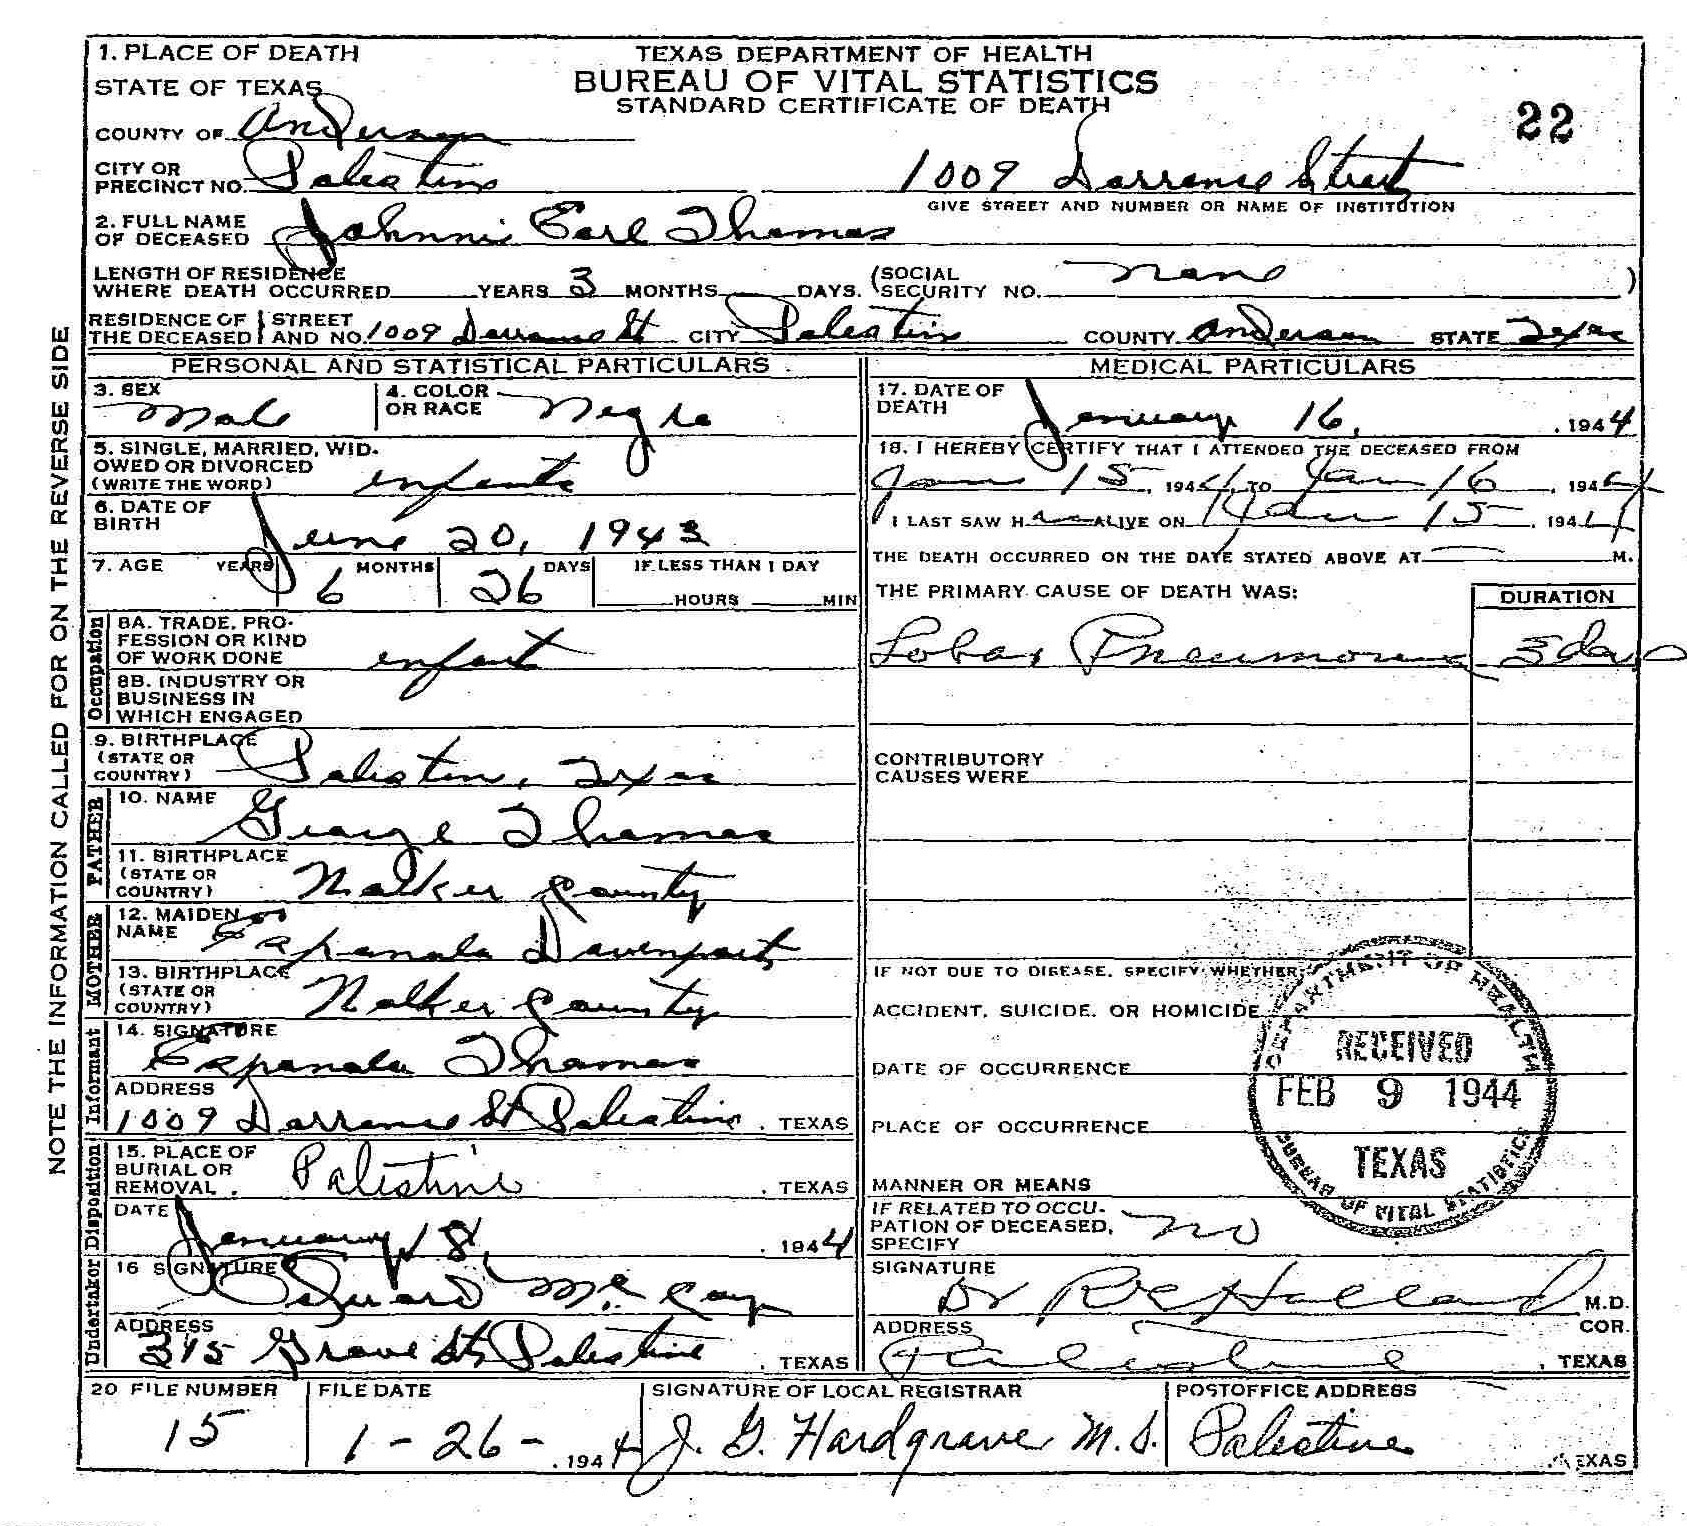 1. PLACE OF DEATH
STATE OF TEXAS
TEXAS DEPARTMENT OF HEALTH
BUREAU OF VITAL STATISTICS
STANDARD CERTIFICATE OF DEATH
22
COUNTY OF Anderson
CITY OR PRECINCT NO. Palestine 1009 Dorrance Street
GIVE STREET AND NUMBER OR NAME OF INSTITUTION
2. FULL NAME OF DECEASED Johnnie Earl Thomas
LENGTH OF RESIDENCE WHERE DEATH OCCURRED YEARS 3 MONTHS DAYS. (SOCIAL SECURITY NO. None )
RESIDENCE OF THE DECEASED STREET AND NO. 1009 Dorrance St CITY Palestine COUNTY Anderson STATE Texas
PERSONAL AND STATISTICAL PARTICULARS
3. SEX Male
4. COLOR OR RACE Negro
5. SINGLE, MARRIED, WIDOWED OR DIVORCED (WRITE THE WORD) infant
6. DATE OF BIRTH June 20, 1943
7. AGE YEARS 6 MONTHS 26 DAYS IF LESS THAN 1 DAY
HOURS MIN
Occupation
8A. TRADE, PROFESSION OR KIND OF WORK DONE infant
8B. INDUSTRY OR BUSINESS IN WHICH ENGAGED
9. BIRTHPLACE (STATE OR COUNTRY) Palestine, Texas
FATHER
10. NAME George Thomas
11. BIRTHPLACE (STATE OR COUNTRY) Walker County
MOTHER
12. MAIDEN NAME Espanola Davenport
13. BIRTHPLACE (STATE OR COUNTRY) Walker County
Informant
14. SIGNATURE Espanola Thomas
ADDRESS 1009 Dorrance St Palestine, TEXAS
Disposition
15. PLACE OF BURIAL OR REMOVAL Palestine, TEXAS
DATE January 18, 1944
Undertaker
16 SIGNATURE Edward Mc Coy
ADDRESS 315 Grove St, Palestine, TEXAS
MEDICAL PARTICULARS
17. DATE OF DEATH January 16, 1944
18. I HEREBY CERTIFY THAT I ATTENDED THE DECEASED FROM
Jan 15, 1944, TO Jan 16, 1944
I LAST SAW H ALIVE ON Jan 15, 1944
THE DEATH OCCURRED ON THE DATE STATED ABOVE AT M.
THE PRIMARY CAUSE OF DEATH WAS: DURATION
Lobar Pneumonia 3 days
CONTRIBUTORY CAUSES WERE
IF NOT DUE TO DISEASE, SPECIFY WHETHER:
ACCIDENT, SUICIDE, OR HOMICIDE
DATE OF OCCURRENCE
PLACE OF OCCURRENCE
MANNER OR MEANS
IF RELATED TO OCCUPATION OF DECEASED, SPECIFY no
SIGNATURE Dr R H Holland M.D.
COR.
ADDRESS Palestine, TEXAS
DEPARTMENT OF HEALTH
RECEIVED
FEB 9 1944
TEXAS
BUREAU OF VITAL STATISTICS
20 FILE NUMBER 15
FILE DATE 1-26-1944
SIGNATURE OF LOCAL REGISTRAR J. G. Hardgrave M.D.
POSTOFFICE ADDRESS Palestine TEXAS
NOTE THE INFORMATION CALLED FOR ON THE REVERSE SIDE